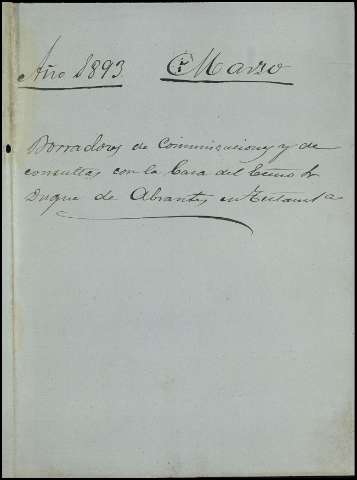 Año 1893. Marzo
Borradores de Comunicaciones y de
consultas con la Casa del Excmo Sr
Duque de Abrantes en Testamta